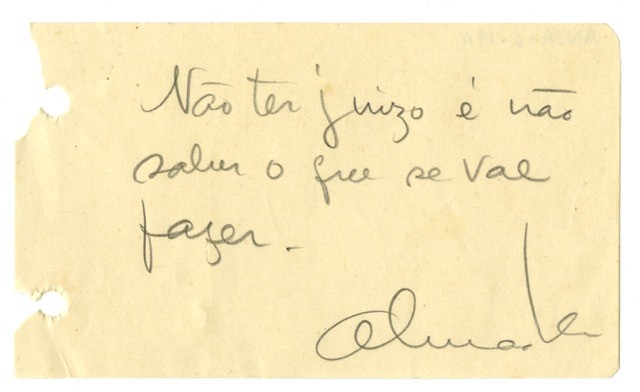 Não ter juizo é não
saber o que se vai
fazer.
Almada